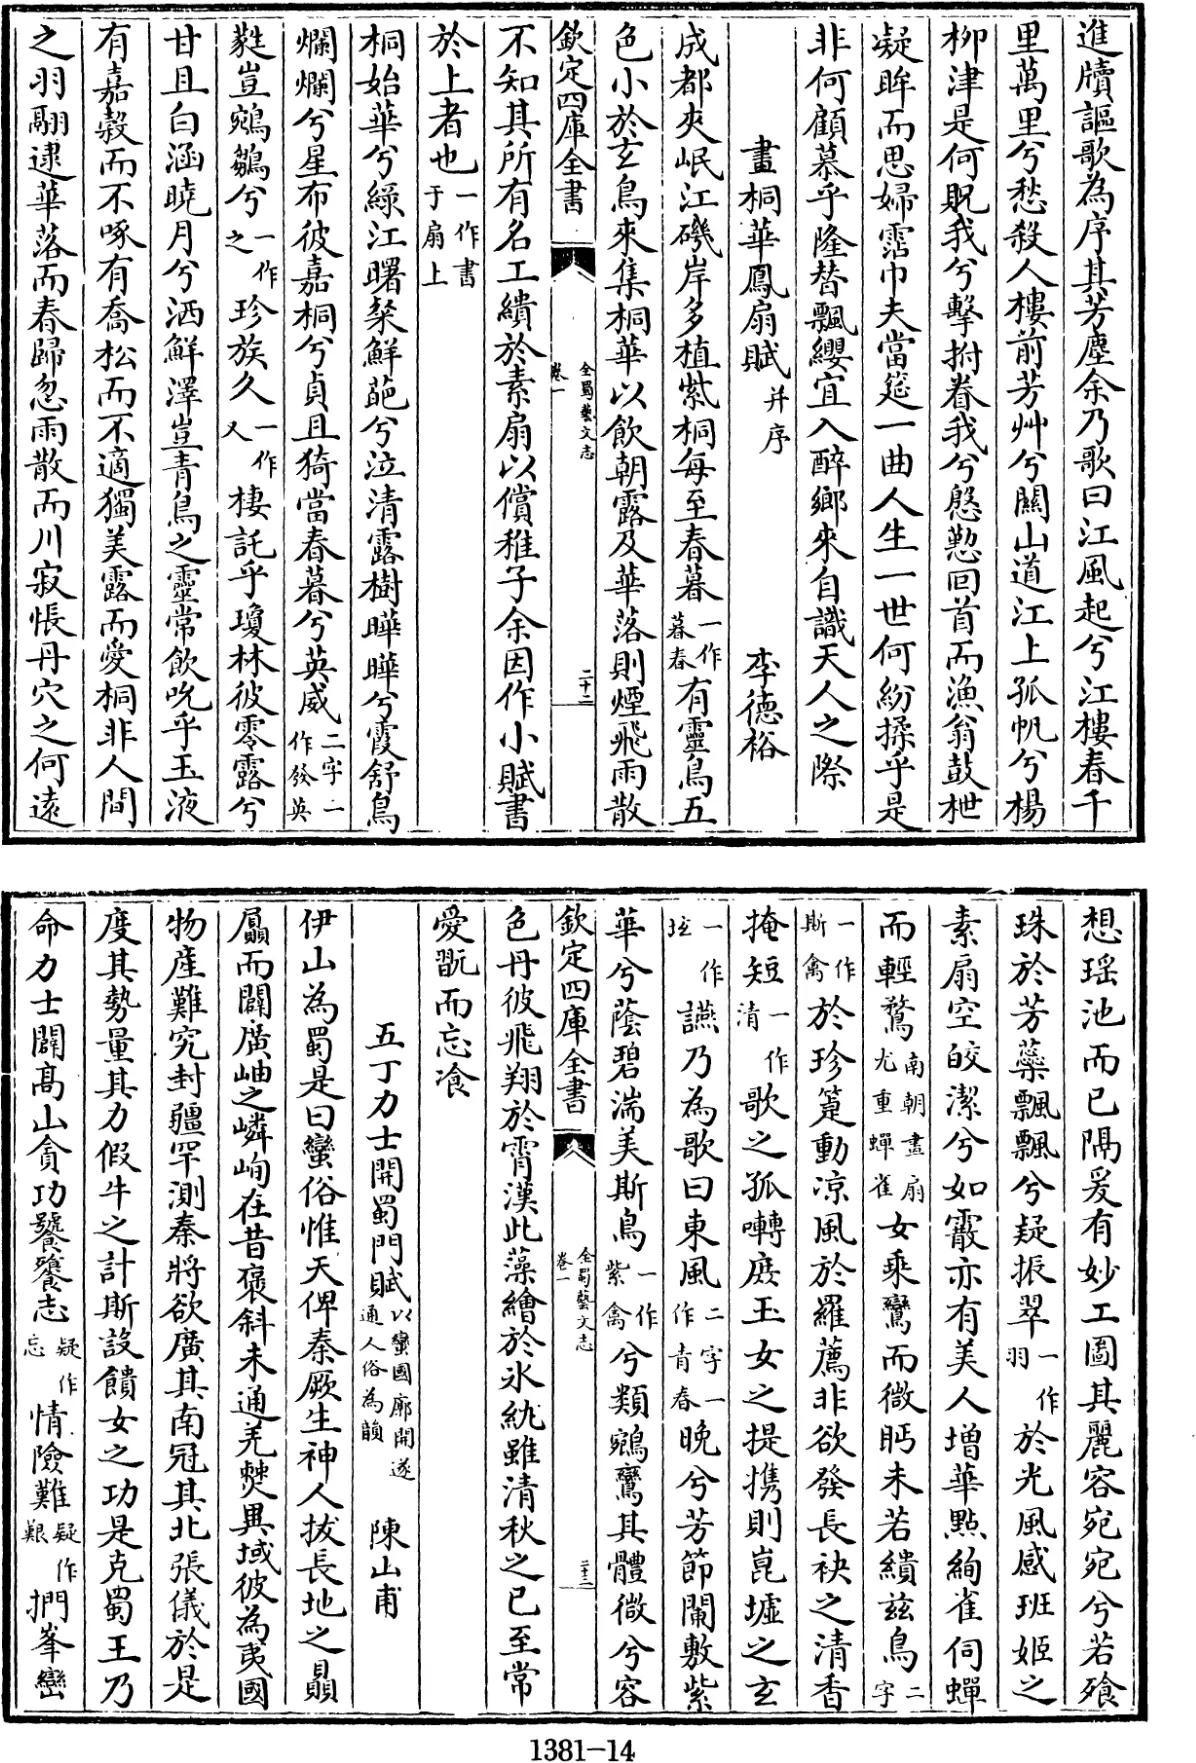 進牘謳歌為序其芳塵余乃歌曰江風起兮江樓春千
里萬里兮愁殺人樓前芳艸兮關山道江上孤帆兮楊
柳津是何貺我兮擊拊眷我兮慇懃回首而漁翁鼓枻
凝眸而思婦霑巾夫當筵一曲人生一世何紛揉乎是
非何顧慕乎隆替飄纓宜入醉鄉來自識天人之際
畫桐華鳳扇賦并序 李德裕
成都夾岷江磯岸多植紫桐每至春暮一作暮春有靈鳥五
色小於玄鳥來集桐華以飲朝露及華落則煙飛雨散
欽定四庫全書 全蜀藝文志 卷一 二十二
不知其所有名工繢於素扇以償稚子余因作小賦書
於上者也一作書于扇上
桐始華兮綠江曙粲鮮葩兮泣清露樹曄曄兮霞舒鳥
爛爛兮星布彼嘉桐兮貞且猗當春暮兮英威二字一作發英
蕤豈鵷鶵兮一作之珍族久一作又棲託乎瓊林彼零露兮
甘且白涵曉月兮洒鮮澤豈青鳥之靈常飲吮乎玉液
有嘉穀而不啄有喬松而不適獨美露而愛桐非人間
之羽翮逮華落而春歸忽雨散而川寂悵丹穴之何遠
想瑶池而已隔爰有妙工圖其麗容宛宛兮若飱
珠於芳蘂飄飄兮疑振翠一作羽於光風感班姬之
素扇空皎潔兮如霰亦有美人增華點絢雀伺蟬
而輕鶩南朝畫扇尤重蟬雀女乘鸞而微眄未若繢兹鳥二字
一作斯禽於珍箑動凉風於羅薦非欲發長袂之清香
掩短一作清歌之孤囀庶玉女之提携則崑墟之玄
一作坛讌乃為歌曰東風二字一作青春晚兮芳節闌敷紫
華兮蔭碧湍美斯鳥一作紫禽兮類鵷鸞其體微兮容
欽定四庫全書 全蜀藝文志 卷一 二十三
色丹彼飛翔於霄漢此藻繪於氷紈雖清秋之已至常
愛翫而忘飡
五丁力士開蜀門賦以蠻國廓開遂通人俗為韻 陳山甫
伊山為蜀是曰蠻俗惟天俾秦厥生神人拔長地之贔
屭而闢廣岫之嶙峋在昔褒斜未通羌僰異域彼為夷國
物産難究封疆罕測秦將欲廣其南冠其北張儀於是
度其勢量其力假牛之計斯設饋女之功是克蜀王乃
命力士闢高山貪功饕餮志疑作忘情險難疑作艱捫峯巒
1381-14